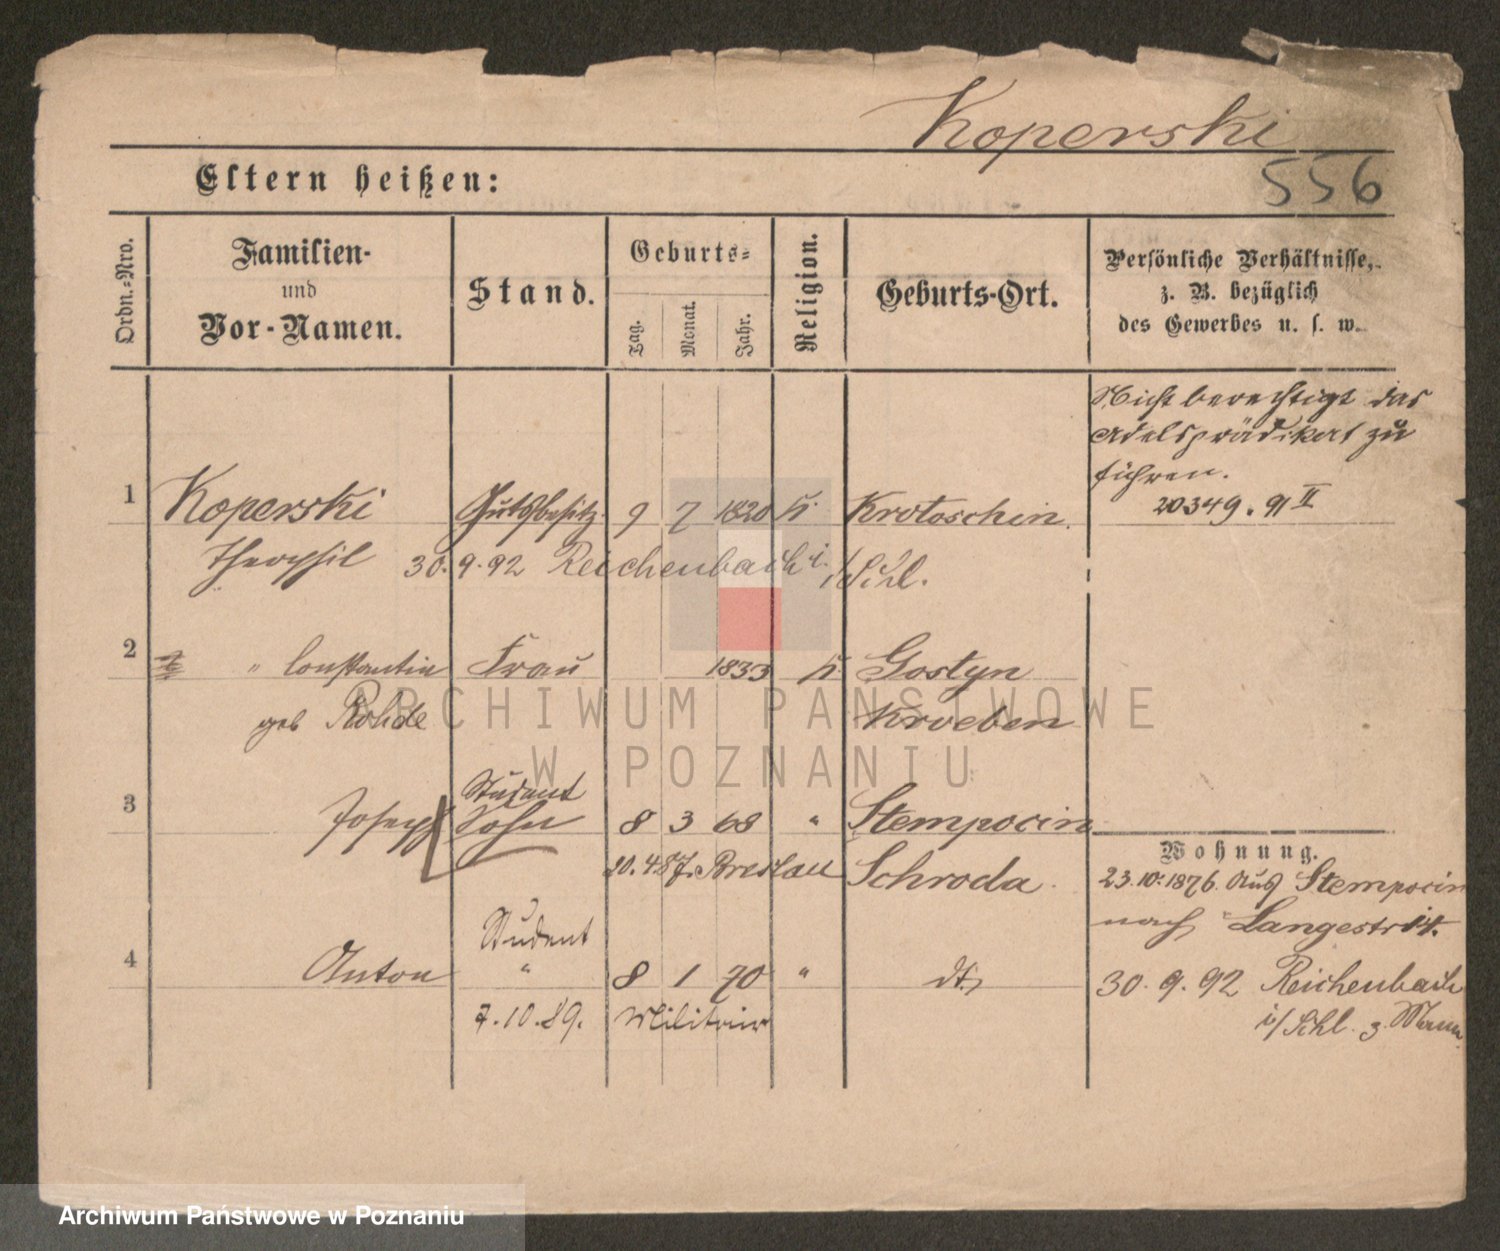 Koperski
556
Eltern heißen:
Ordn.-Nro.
Familien-
und
Vor-Namen.
Stand.
Geburts-
Tag.
Monat.
Jahr.
Religion.
Geburts-Ort.
Persönliche Verhältnisse,
z. B. bezüglich
des Gewerbes u. s. w.
Nicht berechtigt das
Adelsprädikat zu
führen.
20349. 91 II
1 Koperski Gutsbesitz. 9 7 1820 k. Krotoschin.
Theophil 30.9.92 Reichenbach i/Schl.
2 " Constantia Frau 1833 k. Gostyn
geb Rohde Kroeben
Student
3 Joseph Sohn 8 3 68 " Stempocin
20.4 87. Breslau Schroda.
Wohnung.
23.10.1876. Aus Stempocin
nach Langestr 14.
Student
4 Anton " 8 1 70 " dt.
30.9.92 Reichenbach
7.10.89. Militair
i/Schl. z. Mann.
ARCHIWUM PAŃSTWOWE
W POZNANIU
Archiwum Państwowe w Poznaniu